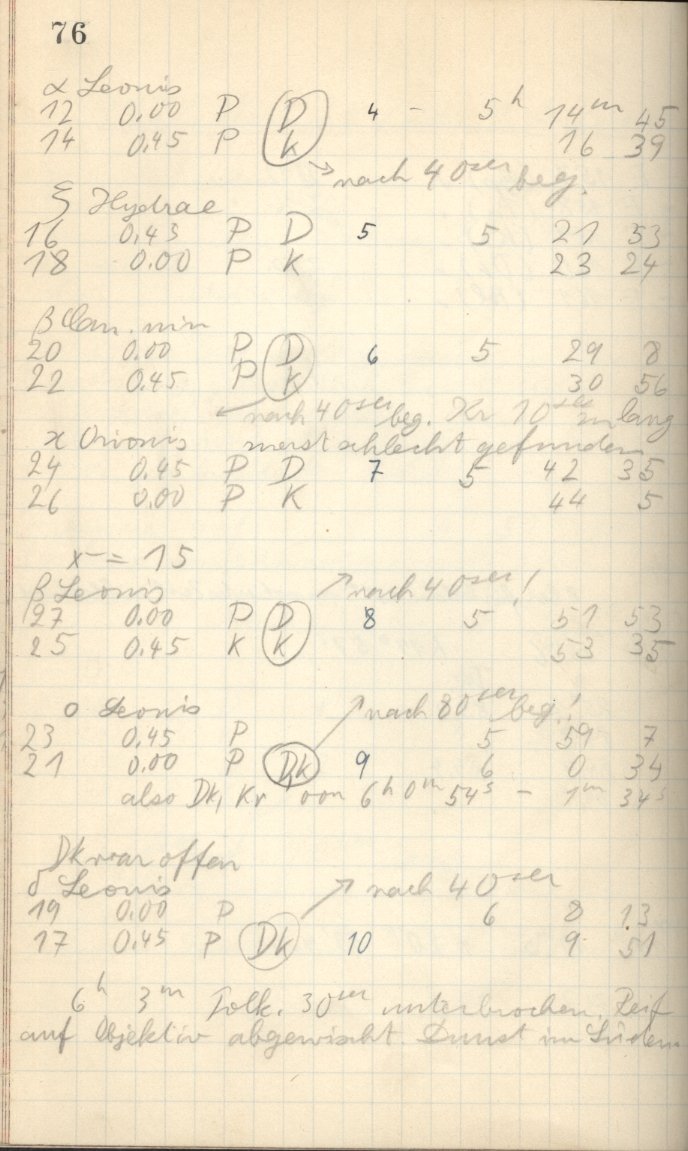 76
α Leonis
12 0.00 P D 4 - 5h 14m 45
14 0.45 P K 16 39
→ nach 40ser beg.
ξ Hydrae
16 0.45 P D 5 5 21 53
18 0.00 P K 23 24
β Can. min
20 0.00 P D 6 5 29 8
22 0.45 P K 30 56
nach 40ser beg. Kr 10 lang
κ Orionis meist schlecht gefunden
24 0.45 P D 7 5 42 35
26 0.00 P K 44 5
x = 15
β Leonis → nach 40ser!
27 0.00 P D 8 5 51 53
25 0.45 K K 53 35
ο Leonis → nach 80ser beg.!
23 0.45 P 5 59 7
21 0.00 P D,K 9 6 0 34
also Dk, Kr von 6h 0m 54s - 1m 34s
Dk war offen
δ Leonis → nach 40ser
19 0.00 P 6 8 13
17 0.45 P Dk 10 9 51
6h 3m Folk. 30ser unterbrochen. Reif
auf Objektiv abgewischt. Dunst im Süden